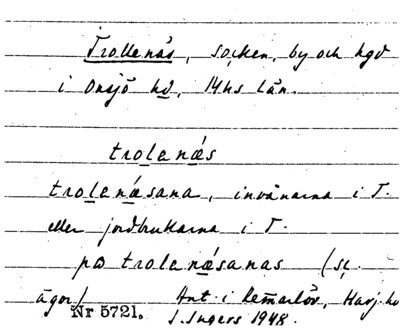 Trollenäs, socken, by och hgd
i Onsjö hd, Mhs län.
trolenæs
trolenæsana, invånarna i T.
eller jordbrukarna i T.
pɑ trolenæsanas (sc.
ägor/ Ant. i Remmarlöv, Harj. hd
Nr 5721. I. Ingers 1948.